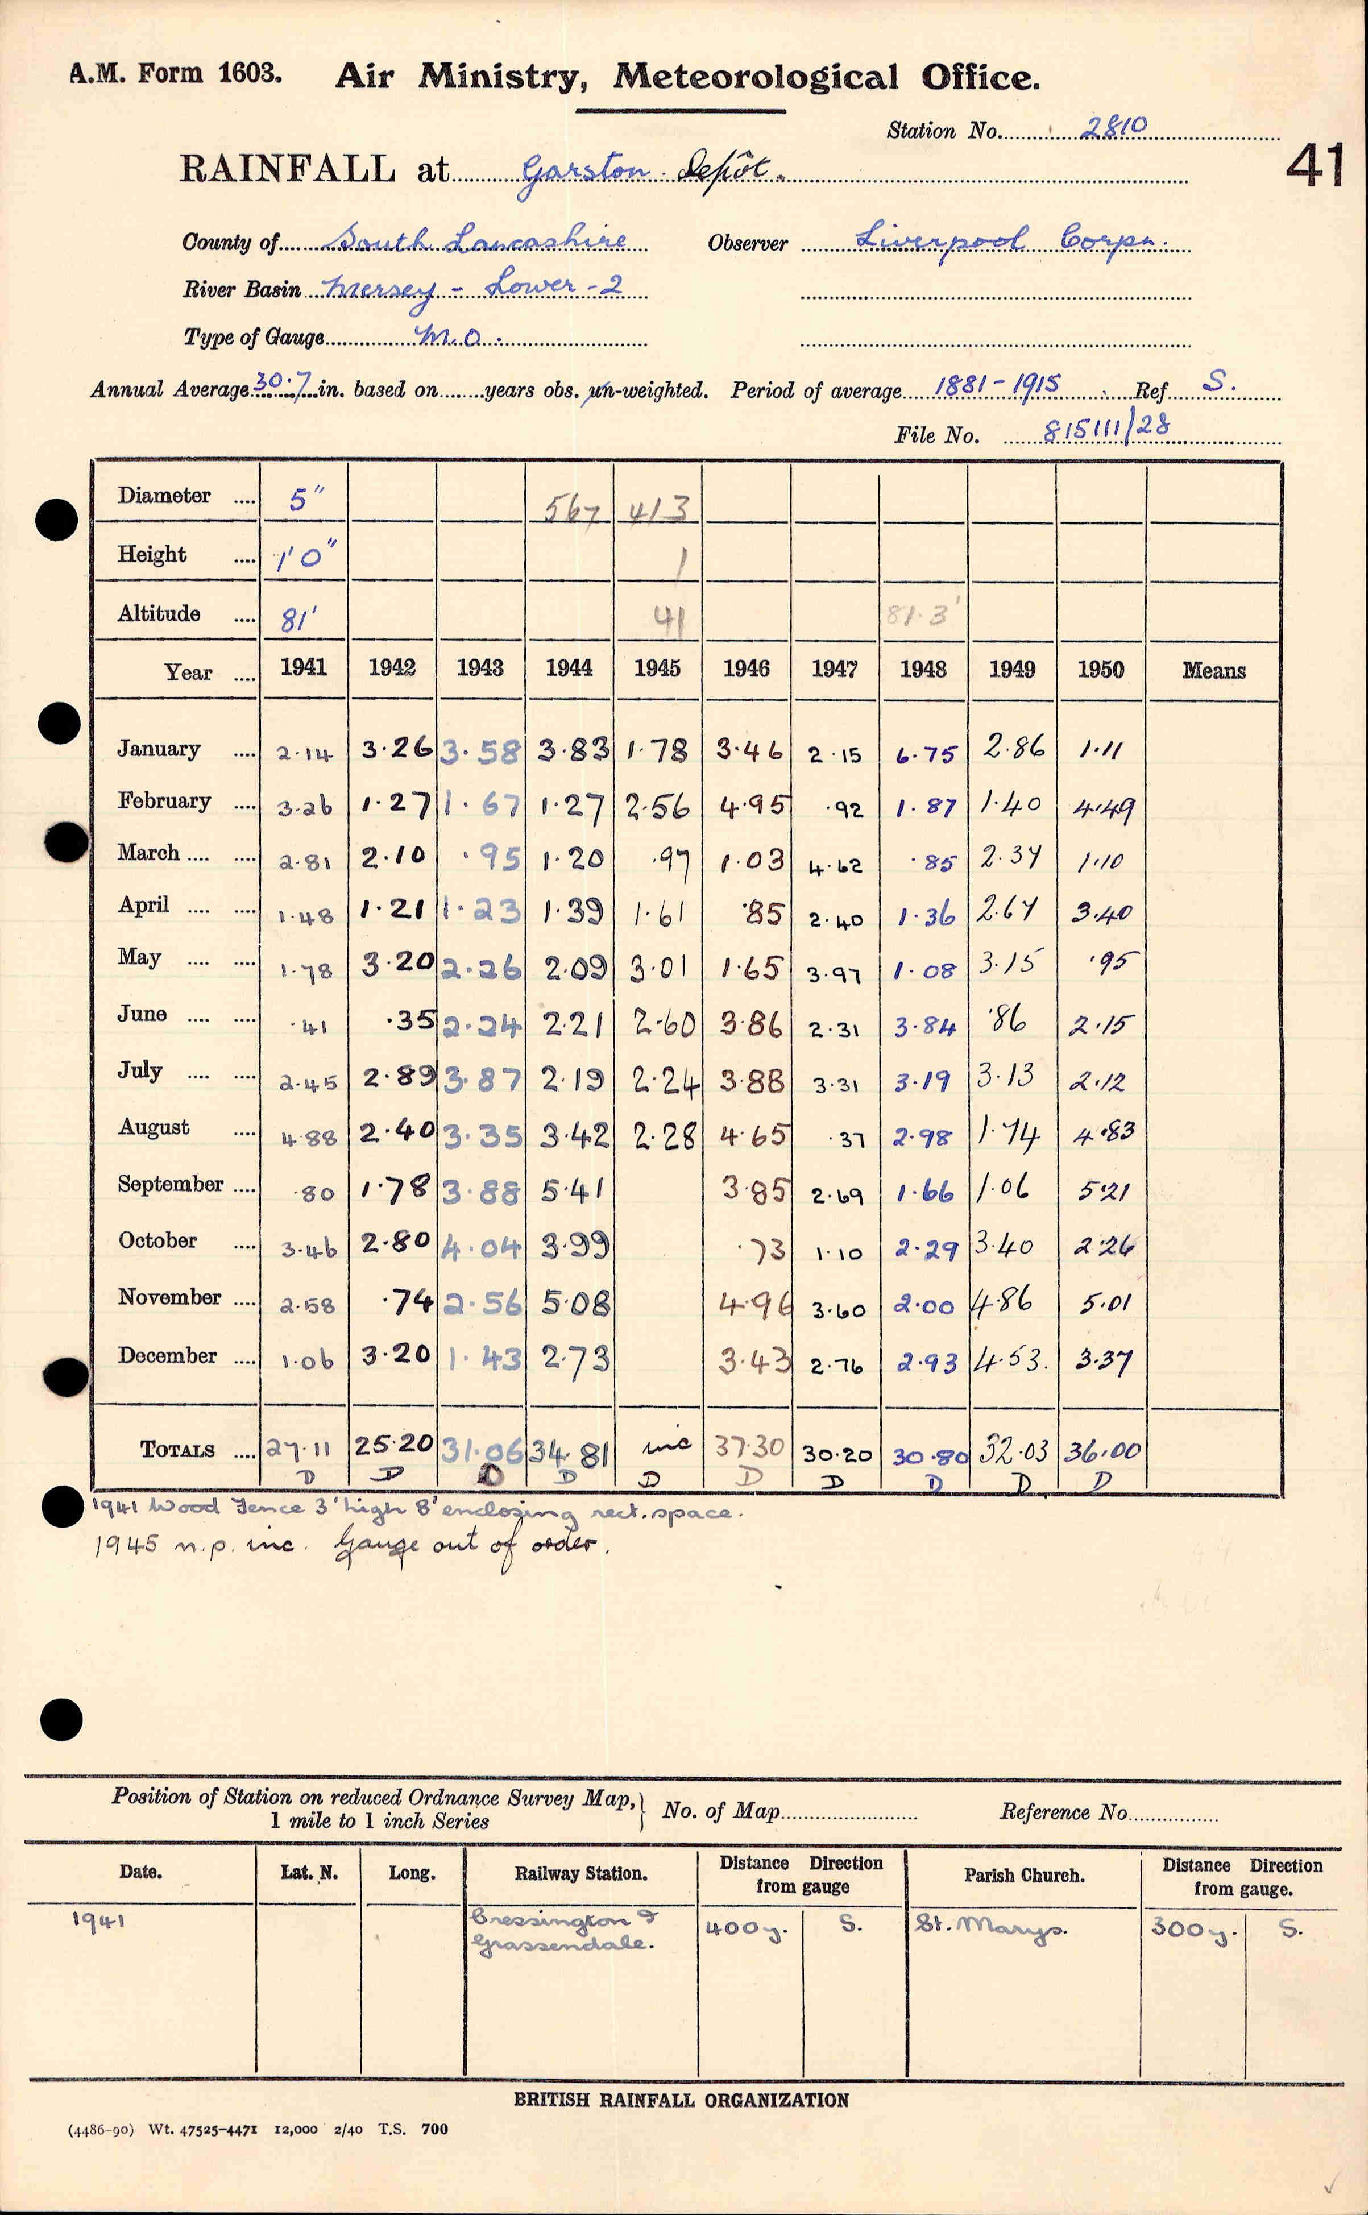 A.M. Form 1603. Air Ministry, Meteorological Office.
Station No. 2810
41
RAINFALL at Garston Depôt.
County of South Lancashire Observer Liverpool Corpn.
River Basin Mersey - Lower - 2
Type of Gauge M.O.
Annual Average 30.7 in. based on years obs. un-weighted. Period of average 1881-1915 Ref S.
File No. 815111/28
Diameter .... 5" 567 413
Height .... 1'0" 1
Altitude .... 81' 41 81.3'
Year .... 1941 1942 1943 1944 1945 1946 1947 1948 1949 1950 Means
January .... 2.14 3.26 3.58 3.83 1.78 3.46 2.15 6.75 2.86 1.11
February .... 3.26 1.27 1.67 1.27 2.56 4.95 .92 1.87 1.40 4.49
March .... .... 2.81 2.10 .95 1.20 .97 1.03 4.62 .85 2.37 1.10
April .... .... 1.48 1.21 1.23 1.39 1.61 .85 2.40 1.36 2.67 3.40
May .... .... 1.78 3.20 2.26 2.09 3.01 1.65 3.97 1.08 3.15 .95
June .... .... .41 .35 2.24 2.21 2.60 3.86 2.31 3.84 .86 2.15
July .... .... 2.45 2.89 3.87 2.19 2.24 3.88 3.31 3.19 3.13 2.12
August .... 4.88 2.40 3.35 3.42 2.28 4.65 .37 2.98 1.74 4.83
September .... .80 1.78 3.88 5.41 3.85 2.69 1.66 1.06 5.21
October .... 3.46 2.80 4.04 3.99 .73 1.10 2.29 3.40 2.26
November .... 2.58 .74 2.56 5.08 4.96 3.60 2.00 4.86 5.01
December .... 1.06 3.20 1.43 2.73 3.43 2.76 2.93 4.53. 3.37
TOTALS .... 27.11 25.20 31.06 34.81 inc 37.30 30.20 30.80 32.03 36.00
D D D D D D D D D D
1941 Wood Fence 3' high 8' enclosing rect. space.
1945 n.p. inc. Gauge out of order.
Position of Station on reduced Ordnance Survey Map, 1 mile to 1 inch Series } No. of Map Reference No.
Date. Lat. N. Long. Railway Station. Distance Direction from gauge Parish Church. Distance Direction from gauge.
1941 Cressington & Grassendale. 400 y. S. St. Marys. 300 y. S.
BRITISH RAINFALL ORGANIZATION
(4486-90) Wt. 47525-4471 12,000 2/40 T.S. 700